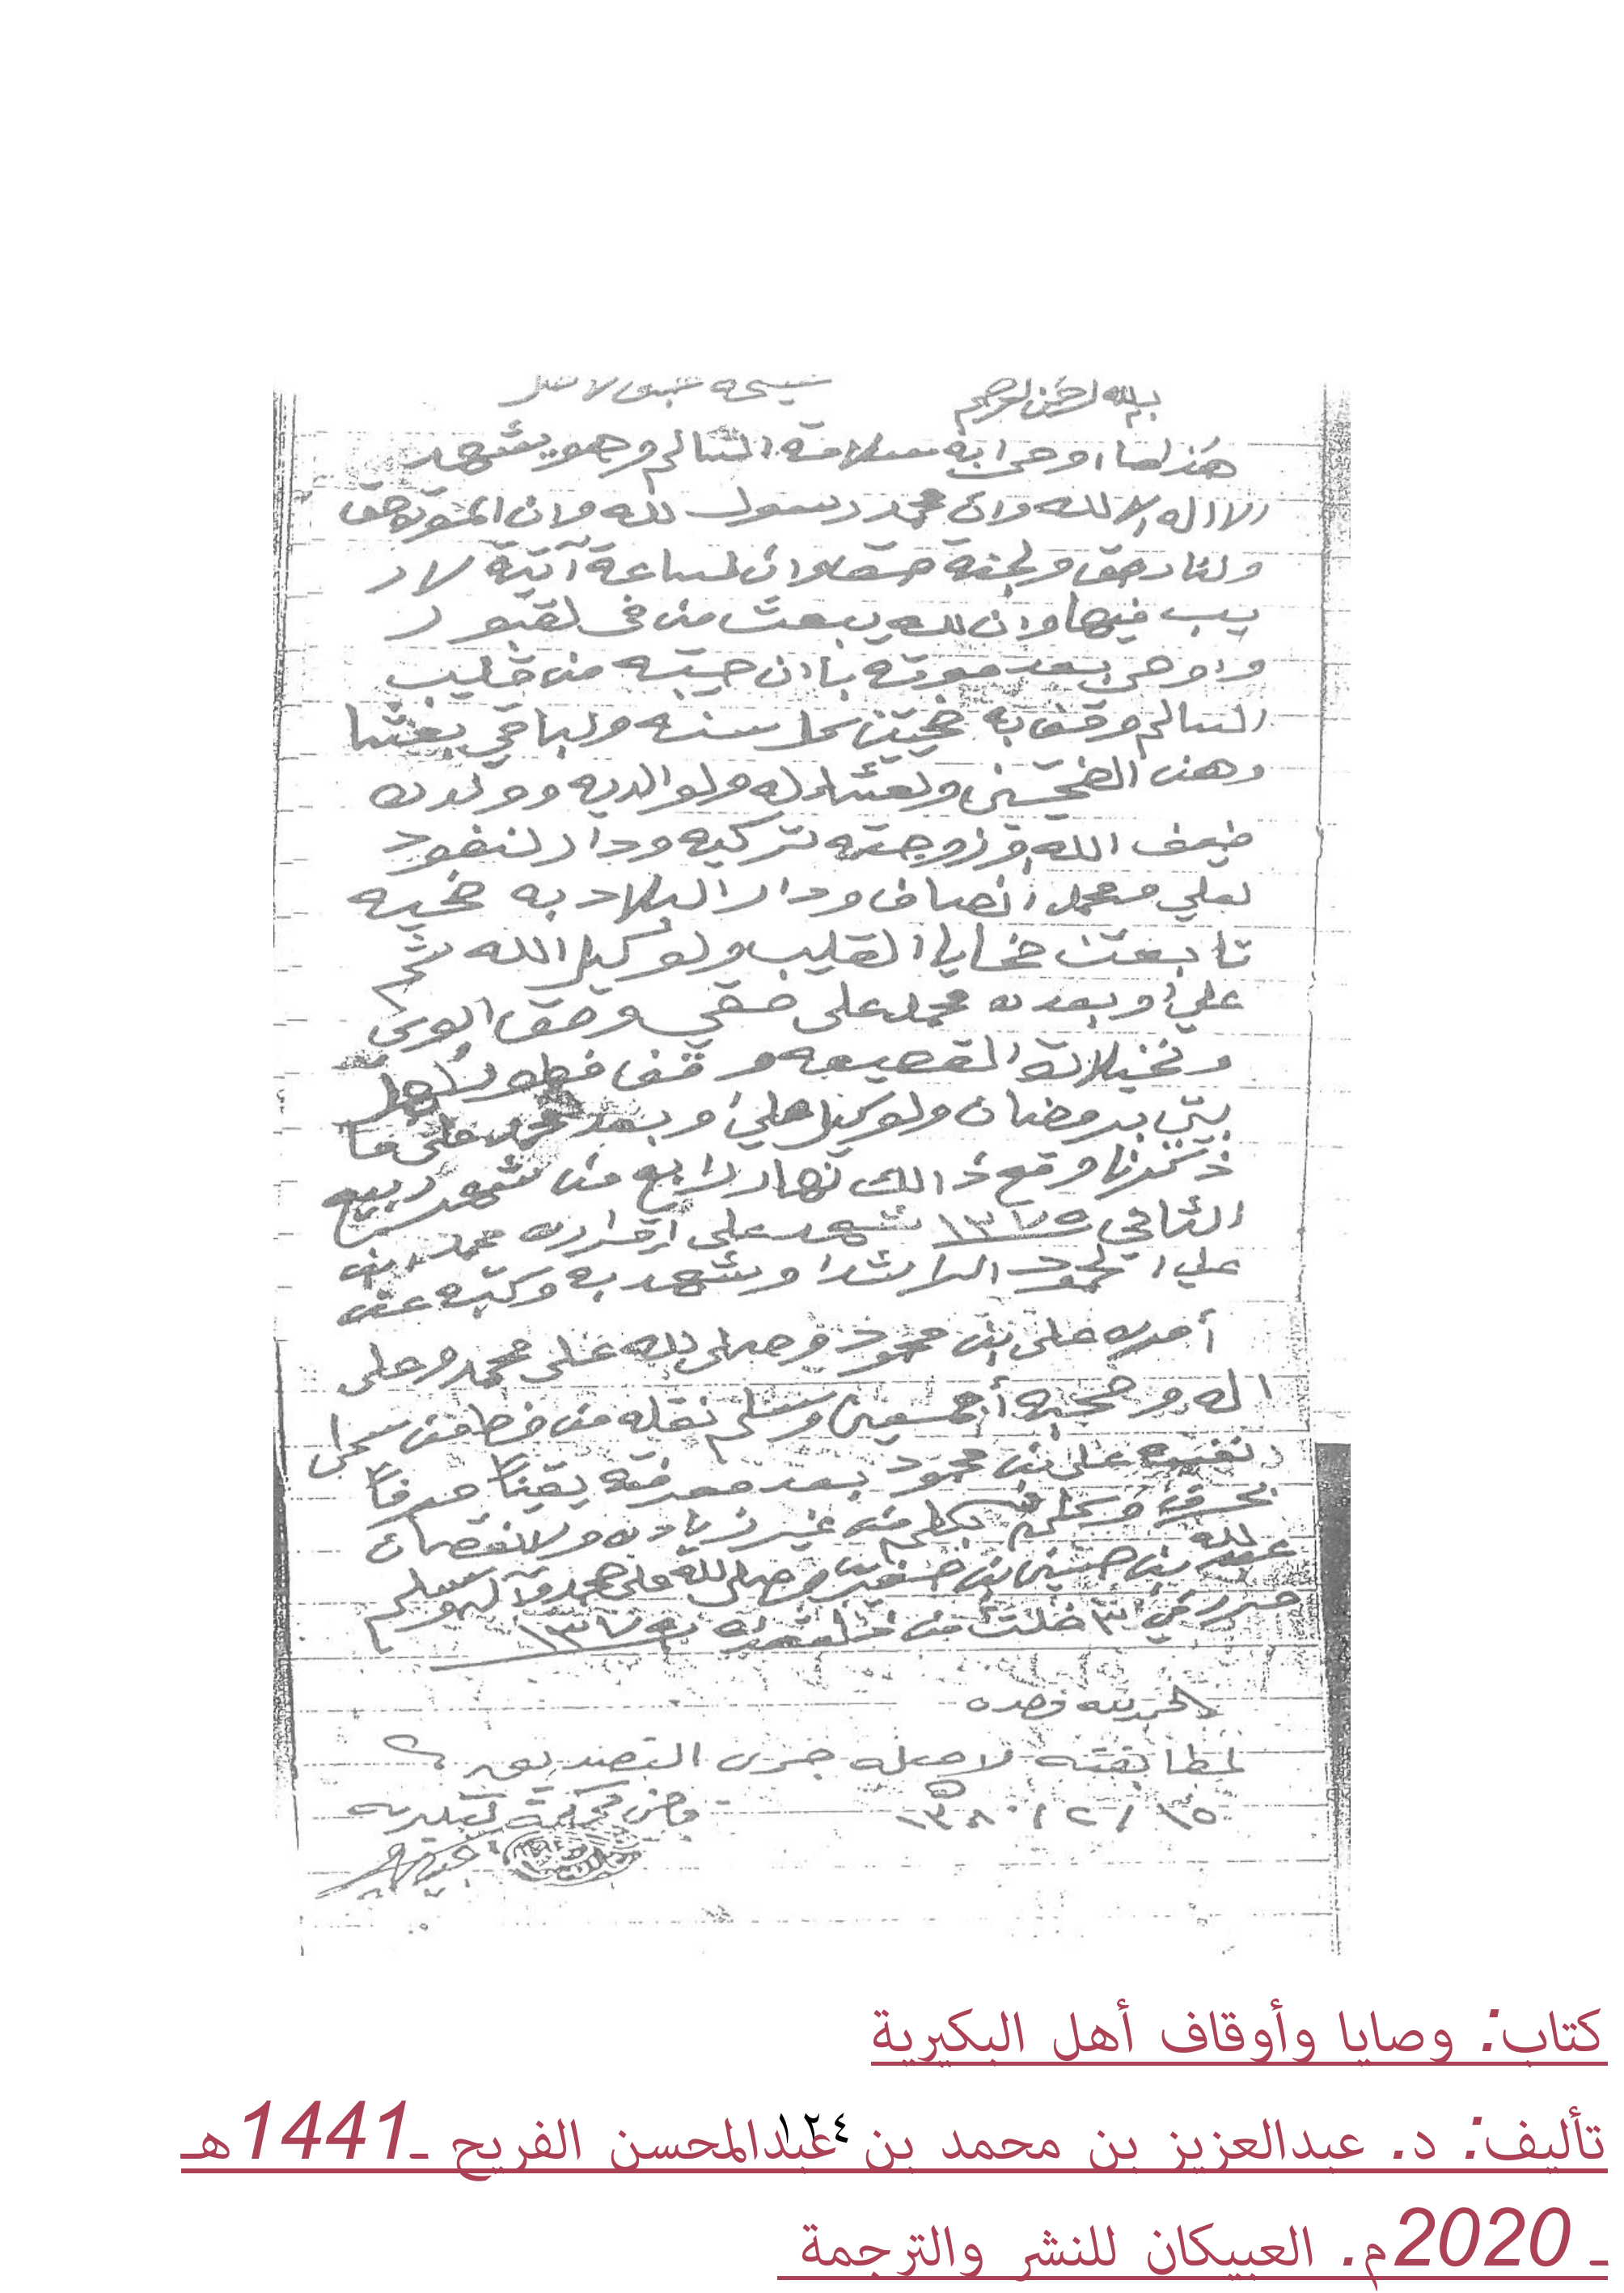 بسم الله الرحمن الرحيم نسخة طبق الاصل
هذا ما اوصى به سلامة السالم وهو يشهد
الا اله الا الله وان محمد رسول الله وان الموت حق
ولنار حق ولجنة حق وان لساعة آتية لا ر
يب فيها وان لله يبعث من في لقبور
واوصى بعد موته باان حيبه من قليب
السالم وقف به ضحيتين كل سنه ولباقي بعشا
وهن الضحيتين ولعشا له ولوالديه وولده
ضيف الله وزوجته تركيه ودار لنفود
لعلي محمد انصاف ودار البلاد به ضحيه
تابعتن ضحايا القليب ولوكيل الله ثم
علي وبعده محمد على حقي وحق ابوي
ونخيلاة القصيعه وقف فطور لاهل
بيتي برمضان ولوكيل علي وبعد محمد على ما
ذكرنا وقع ذالك نهار رابع من شهر ربيع
الثاني ١٣٧٥ شهد على اقراره محمد ابن
علي المحمود الراشد وشهد به وكتبه عن
أمره علي بن محمود وصلى لله على محمد وعلى
اله وصحبه أجمعين وسلم نقله من خط من سمى
نفسه علي بن محمود بعد معرفته يقيناً حرفاً
بحرف من غير زيادة ولا نقصان
عبد لله بن حسين بن وصلى لله على محمد وآله وسلم
حرر في ٣ خلت من ١٣٧٥
الحمد لله وحده
لمطابقته لاصله جرى التصديق
١٥ / ٢ / ١٣٨٠هـ قاضي محكمة لبكيريه
كتاب: وصايا وأوقاف أهل البكيرية
تأليف: د. عبدالعزيز بن محمد بن عبدالمحسن الفريح ـ1441هـ
١٢٤
ـ 2020م. العبيكان للنشر والترجمة